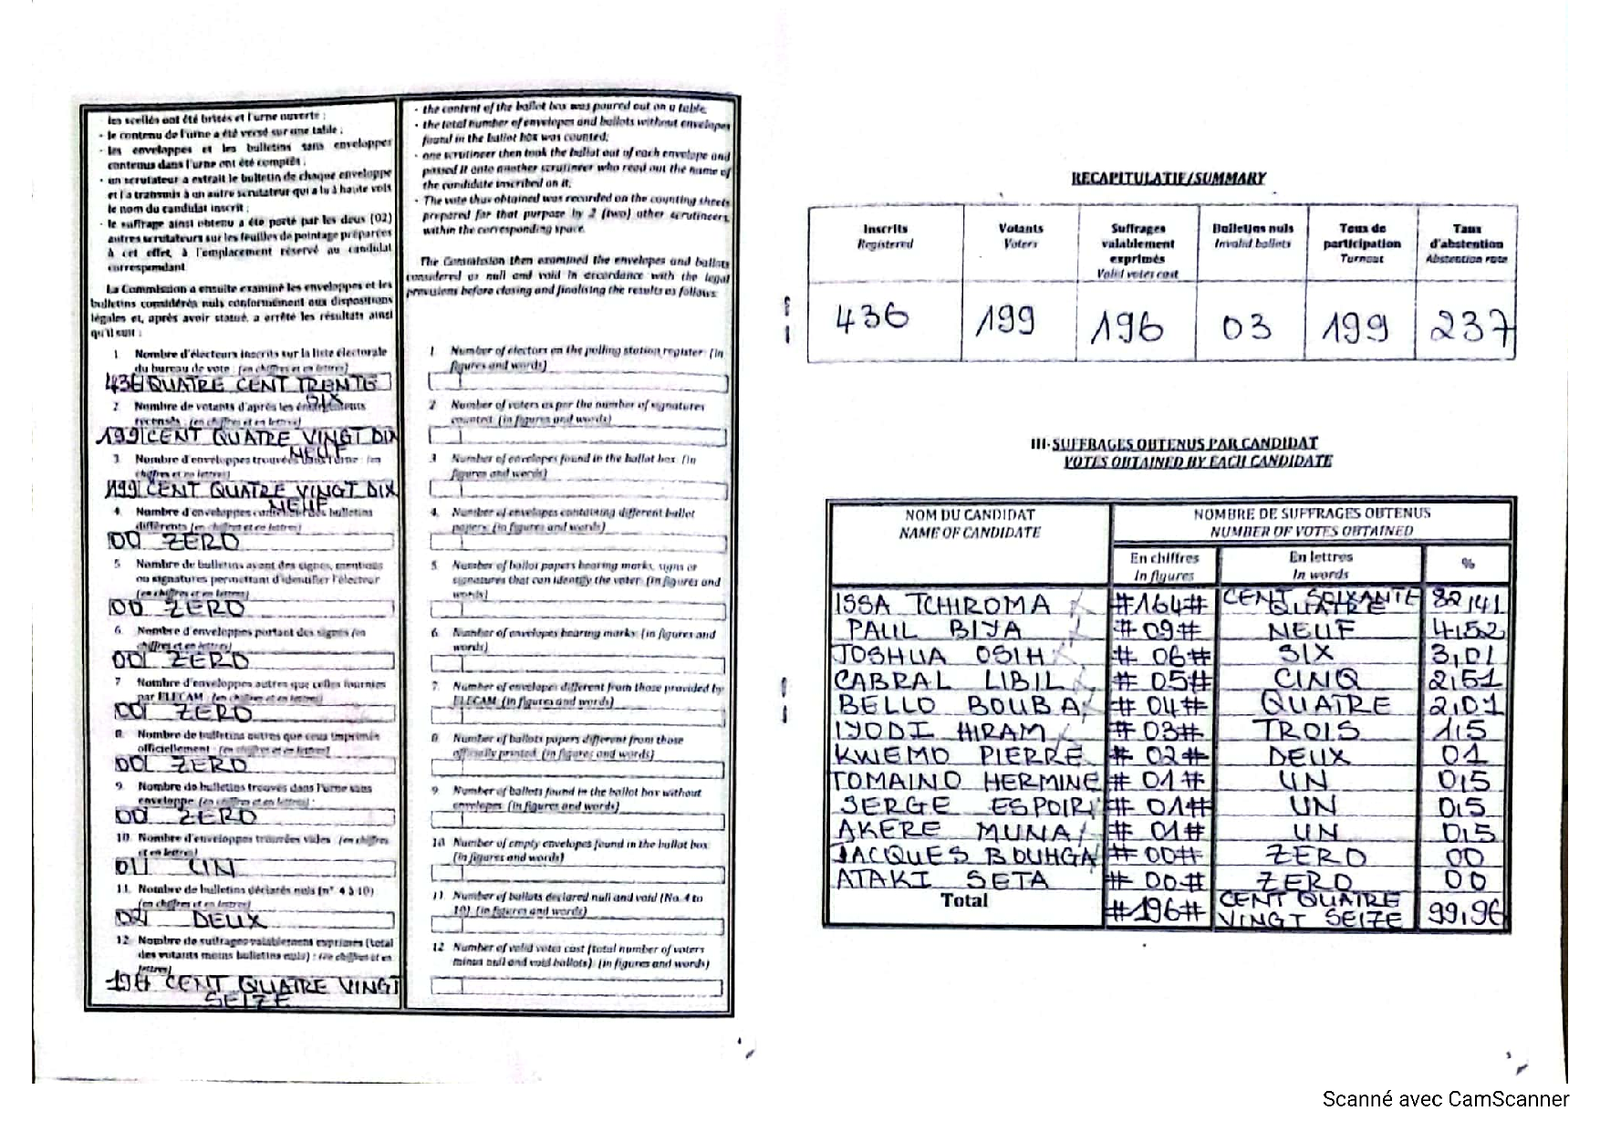 les scellés ont été brisés et l'urne ouverte ;
- le contenu de l'urne a été versé sur une table ;
- les enveloppes et les bulletins sans enveloppes
contenus dans l'urne ont été comptés ;
- un scrutateur a extrait le bulletin de chaque enveloppe
et l'a transmis à un autre scrutateur qui a lu à haute voix
le nom du candidat inscrit ;
- le suffrage ainsi obtenu a été porté par les deux (02)
autres scrutateurs sur les feuilles de pointage préparées
à cet effet, à l'emplacement réservé au candidat
correspondant
La Commission a ensuite examiné les enveloppes et les
bulletins considérés nuls conformément aux dispositions
légales et, après avoir statué, a arrêté les résultats ainsi
qu'il suit :
1 Nombre d'électeurs inscrits sur la liste électorale
du bureau de vote : (en chiffres et en lettres)
436 QUATRE CENT TRENTE
SIX
2 Nombre de votants d'après les émargements
recensés : (en chiffres et en lettres)
199 CENT QUATRE VINGT DIX
NEUF
3 Nombre d'enveloppes trouvées dans l'urne : (en
chiffres et en lettres)
199 CENT QUATRE VINGT DIX
NEUF
4. Nombre d'enveloppes contenant des bulletins
différents (en chiffres et en lettres)
00 ZERO
5 Nombre de bulletins ayant des signes, mentions
ou signatures permettant d'identifier l'électeur
(en chiffres et en lettres)
00 ZERO
6. Nombre d'enveloppes portant des signes (en
chiffres et en lettres)
00 ZERO
7 Nombre d'enveloppes autres que celles fournies
par ELECAM (en chiffres et en lettres)
00 ZERO
8. Nombre de bulletins autres que ceux imprimés
officiellement : (en chiffres et en lettres)
00 ZERO
9. Nombre de bulletins trouvés dans l'urne sans
enveloppe (en chiffres et en lettres) :
00 ZERO
10. Nombre d'enveloppes trouvées vides (en chiffres
et en lettres)
01 UN
11. Nombre de bulletins déclarés nuls (n° 4 à 10)
(en chiffres et en lettres)
02 DEUX
12 Nombre de suffrages valablement exprimés (total
des votants moins bulletins nuls) : (en chiffres et en
lettres)
196 CENT QUATRE VINGT
SEIZE
- the content of the ballot box was poured out on a table,
- the total number of envelopes and ballots without envelopes
found in the ballot box was counted;
- one scrutineer then took the ballot out of each envelope and
passed it onto another scrutineer who read out the name of
the candidate inscribed on it;
- The vote thus obtained was recorded on the counting sheets
prepared for that purpose by 2 (two) other scrutineers,
within the corresponding space.
The Commission then examined the envelopes and ballots
considered as null and void in accordance with the legal
provisions before closing and finalising the results as follows:
1 Number of electors on the polling station register: (in
figures and words)
2 Number of voters as per the number of signatures
counted: (in figures and words)
3 Number of envelopes found in the ballot box: (in
figures and words)
4. Number of envelopes containing different ballot
papers: (in figures and words)
5 Number of ballot papers bearing marks, signs or
signatures that can identify the voter: (in figures and
words)
6. Number of envelopes bearing marks: (in figures and
words)
7. Number of envelopes different from those provided by
ELECAM: (in figures and words)
8 Number of ballots papers different from those
officially printed: (in figures and words)
9 Number of ballots found in the ballot box without
envelopes: (in figures and words)
10 Number of empty envelopes found in the ballot box:
(in figures and words)
11 Number of ballots declared null and void (No. 4 to
10): (in figures and words)
12 Number of valid votes cast (total number of voters
minus null and void ballots): (in figures and words)
RECAPITULATIF/SUMMARY
Inscrits Votants Suffrages valablement exprimés Bulletins nuls Taux de participation Taux d'abstention
Registered Voters Valid votes cast Invalid ballots Turnout Abstention rate
436 199 196 03 199 237
III-SUFFRAGES OBTENUS PAR CANDIDAT
VOTES OBTAINED BY EACH CANDIDATE
NOM DU CANDIDAT NOMBRE DE SUFFRAGES OBTENUS
NAME OF CANDIDATE NUMBER OF VOTES OBTAINED
En chiffres En lettres %
In figures In words
ISSA TCHIROMA #164# CENT SOIXANTE QUATRE 82,41
PAUL BIYA #09# NEUF 4,52
JOSHUA OSIH # 06# SIX 3,01
CABRAL LIBIL # 05# CINQ 2,51
BELLO BOUBA # 04# QUATRE 2,01
IYODI HIRAM # 03# TROIS 1,5
KWEMO PIERRE # 02# DEUX 01
TOMAINO HERMINE # 01# UN 0,5
SERGE ESPOIR # 01# UN 0,5
AKERE MUNA # 01# UN 0,5
JACQUES BOUHGA # 00# ZERO 00
ATAKI SETA # 00# ZERO 00
Total #196# CENT QUATRE VINGT SEIZE 99,96
Scanné avec CamScanner